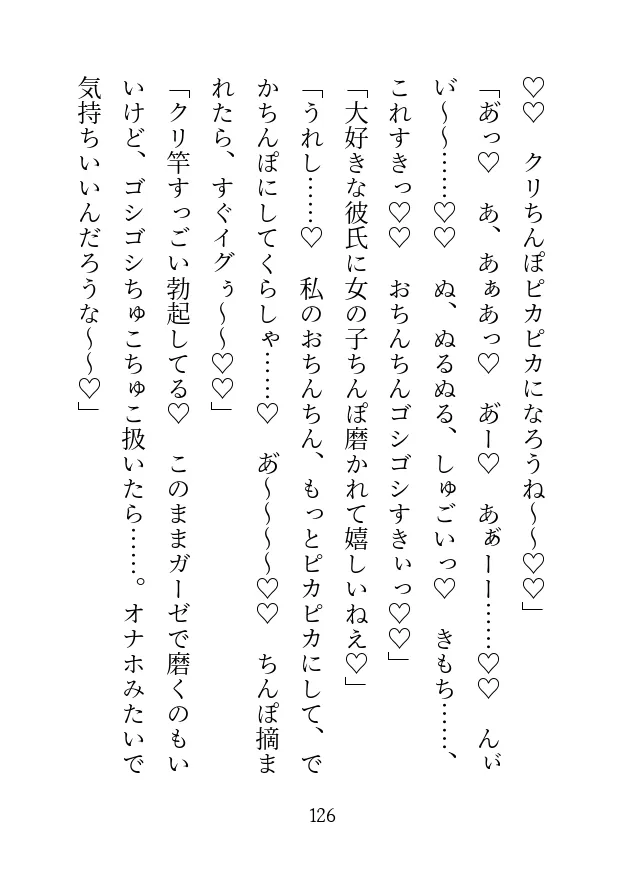 ♡♡　クリちんぽピカピカになろうね～～♡♡」
「あ゙っ♡　あ、あぁあっ♡　あ゙ー♡　あぁ゙ーー……♡♡　んぃ゙
い゙～～……♡♡　ぬ、ぬるぬる、しゅごいっ♡　きもち……、
これすきっ♡♡　おちんちんゴシゴシすきぃっ♡♡」
「大好きな彼氏に女の子ちんぽ磨かれて嬉しいねえ♡」
「うれし……♡　私のおちんちん、もっとピカピカにして、で
かちんぽにしてくらしゃ……♡　あ゙～～～～♡♡　ちんぽ摘ま
れたら、すぐイグぅ～～♡♡」
「クリ竿すっごい勃起してる♡　このままガーゼで磨くのもい
いけど、ゴシゴシちゅこちゅこ扱いたら……。オナホみたいで
気持ちいいんだろうな～～♡」
126